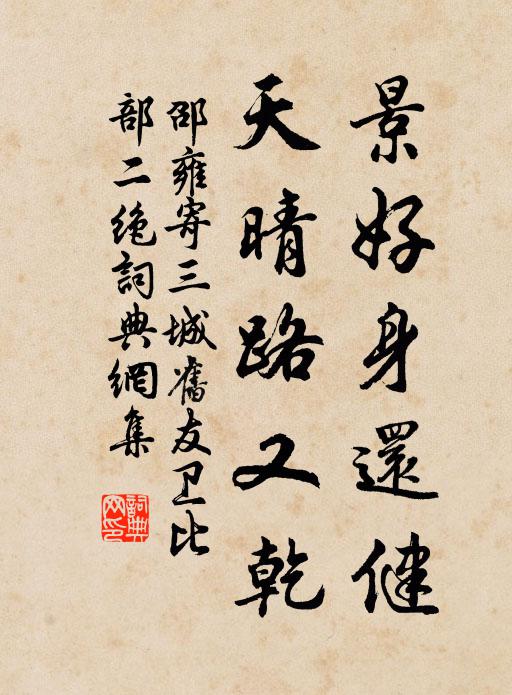 景好身還健
天晴路又乾
邵雍寄三城舊友卫比
部二绝詞典網集
詞典
网印